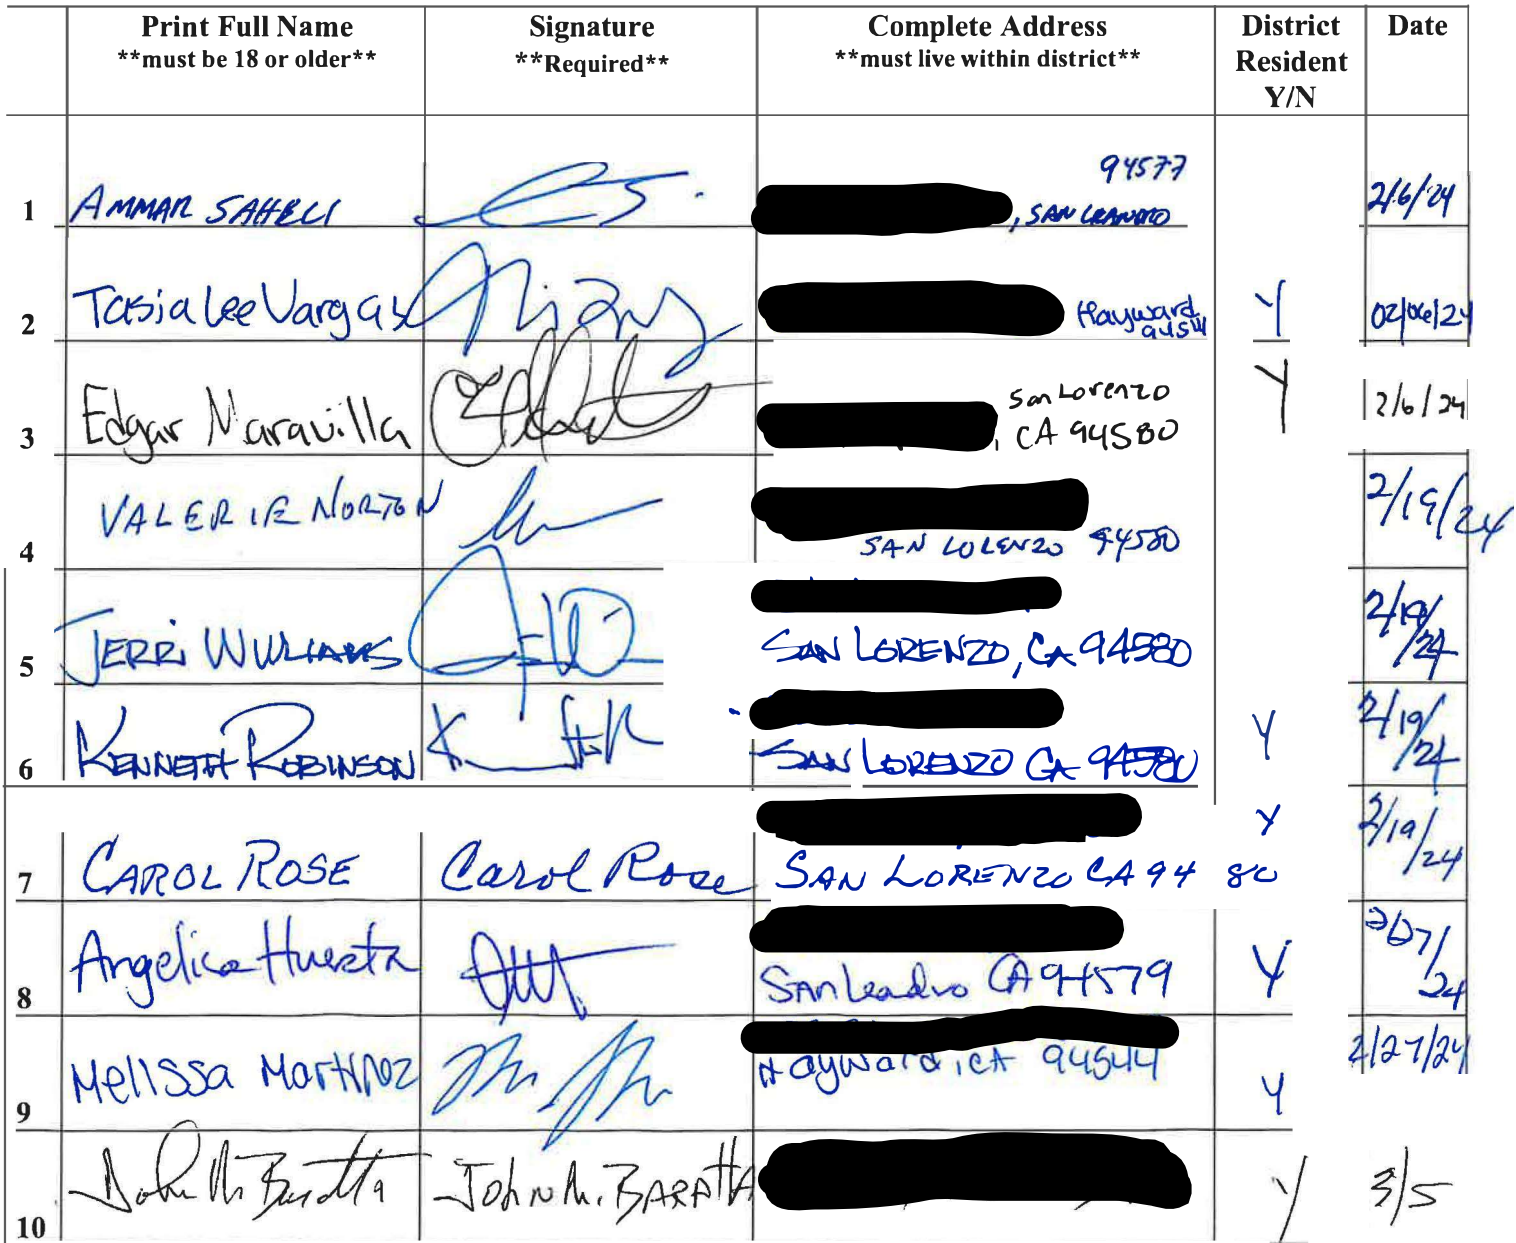 Print Full Name Signature Complete Address District Date
**must be 18 or older** **Required** **must live within district** Resident
Y/N
94577
1 AMMAR SAHELI , SAN LEANDRO 2/6/24
2 Tasia Lee Vargas Hayward Y 02/06/24
94544
San Lorenzo
3 Edgar Maravilla , CA 94580 Y 2/6/24
4 VALERIE NORTON SAN LORENZO 94580 2/19/24
5 JERRI WILLIAMS SAN LORENZO, CA 94580 2/19/24
6 KENNETH ROBINSON SAN LORENZO CA 94580 Y 2/19/24
7 CAROL ROSE Carol Rose SAN LORENZO CA 94 80 Y 2/19/24
8 Angelica Huerta San Leandro CA 94579 Y 2/27/24
9 Melissa Martinez Hayward, CA 94544 Y 2/27/24
10 John M Baratta John M. BARATTA Y 3/5